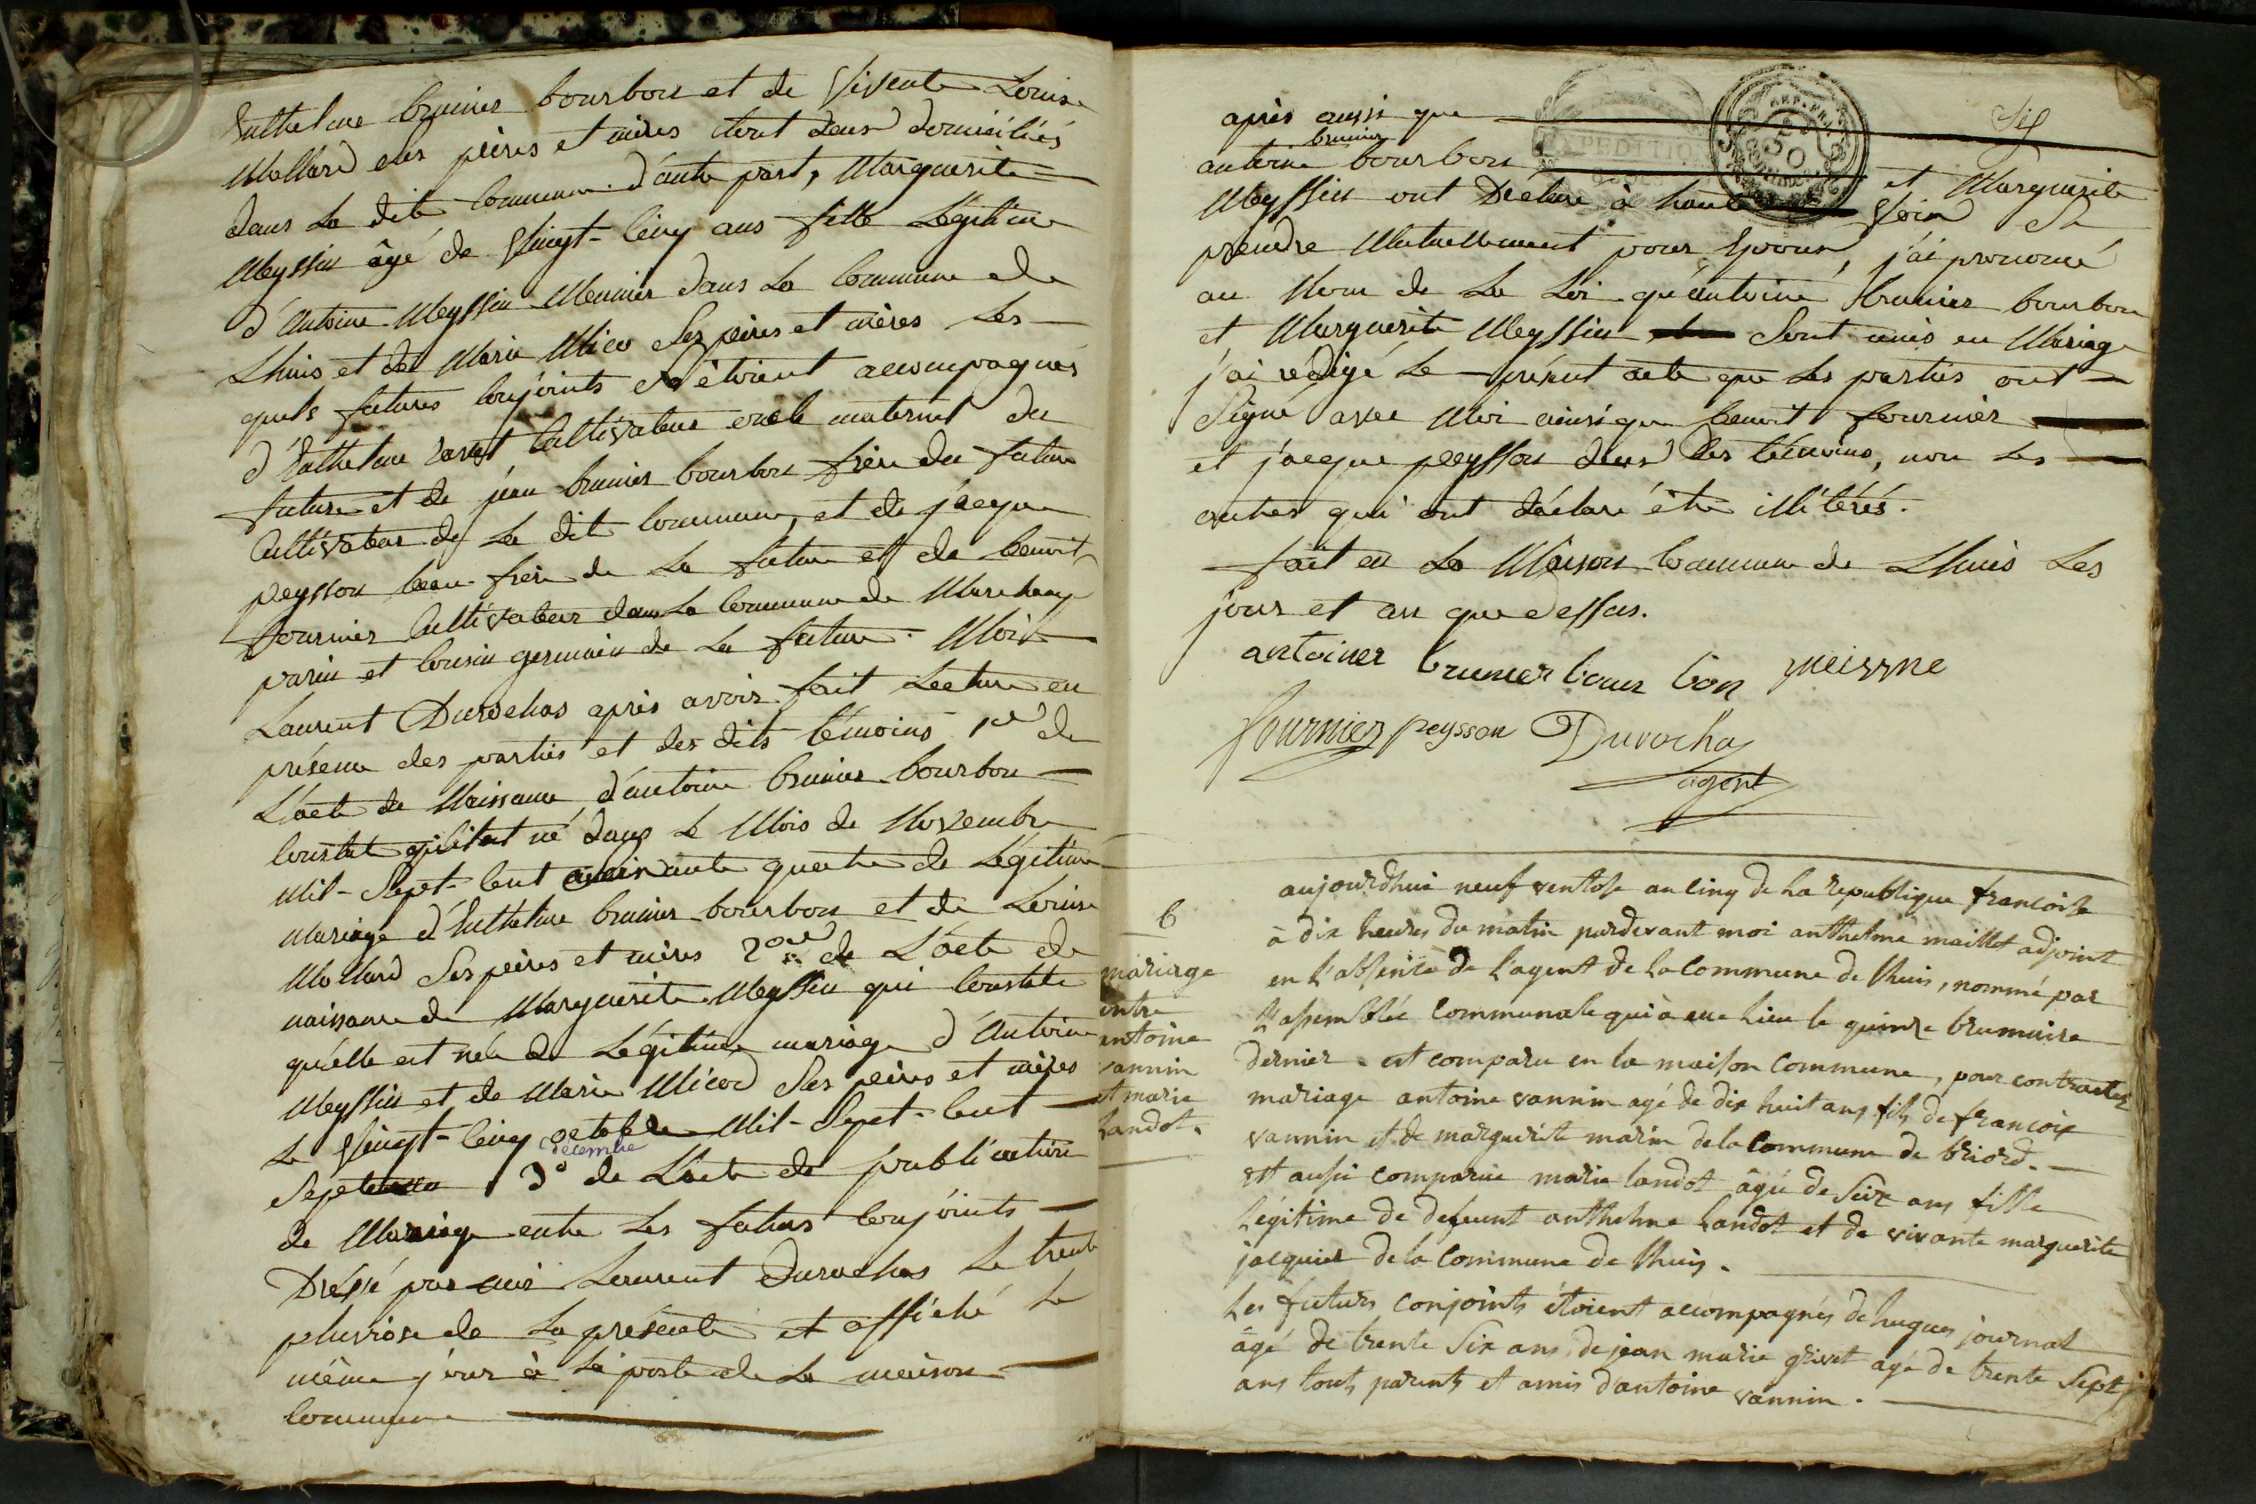 Anthelme brunier bourbon et de vivente Louise
Mollard ses pères et mères tout deux domiciliés
dans la dite commune d'autre part, Marguerite
Meyssin âgé de vingt-cinq ans fille Légitime
d'Antoine Meyssin Meunier dans la commune de
Lhuis et de Marie Micod Ses pères et mères Les
quels futures conjoints étoient accompagnés
d'Anthelme cultivateur oncle maternel du
future et de jean brunier bourbon frère du future
Cultivateur de la dit commune, et de jacque
peysson beau-frère de la future et de benoit
fournier Cultivateur dans la commune de Marchamp
parin et cousin germain de la future. Moi
Laurent Durochas après avoir fait Lecture en
présence des parties et des dits témoins 1er de
L'acte de Naissance d'antoine brunier bourbon
Constate qu'il est né dans le Mois de Novembre
Mil-Sept-Cent quatre de Légitime
mariage d'Anthelme brunier bourbon et de Louise
Mollard Ses pères et mères 2o de L'acte de
naissance de Marguerite Meyssin qui Constate
qu'elle est née de Légitime mariage d'Antoine
Meyssin et de Marie Micod Ses pères et mères
Le vingt-cinq octobre Mil-Sept-Cent
decembre
Septente 3° de L'acte de publication
de Mariage entre Les futurs conjoints
Dressé par moi Laurent Durochas Le trente
pluviose de La présente et affiché Le
même jour à la porte de La maison
commune
Six
après aussi que
brunier
antoine bourbon et Marguerite
EXPEDITION
REP. FRA.
50
Meyssin ont Déclaré à haute voix Se
prendre Mutuellement pour Epoux, j'ai prononcé
au Nom de La Loi qu'antoine brunier bourbon
et Marguerite Meyssin Sont unis en Mariage
j'ai rédigé Le présent acte que Les parties ont
Signé avec Moi ainsi que benoit fournier
et jacque peysson deux Des témoins, non Les
autres qui ont déclaré être illitérés.
fait en La Maison Commune de Lhuis Les
jour et an que dessus.
antoiner brunier bour bon meissne
fournier peysson Durochas
agent
6
mariage
entre
antoine
vannin
et marie
Landot.
aujourdhui neuf ventose an cinq de La republique francoise
à dix heures du matin pardevant moi anthelme maillet adjoint
en L'absence de L'agent de La commune de Lhuis, nommé par
L'assemblée Communale qui à eue Lieu le quinze brumaire
dernier. est comparu en la maison commune, pour contracter
mariage antoine vannin agé de dix huit ans fils de francois
vannin et de marguerite marin de la commune de briord.
est aussi comparue marie landot âgée de Seize ans fille
Légitime de defeunt anthelme Landot et de vivante marguerite
jacquier de la Commune de Lhuis.
Les futurs conjoints étoient accompagnés de hugues journal
âgé de trente Six ans, de jean marie grivet agé de trente Sept
ans touts parents et amis d'antoine vannin.